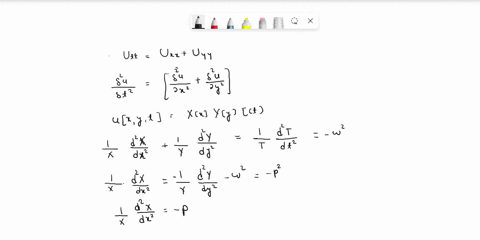 Utt = Uxx + Uyy
δ²u/δt² = [δ²u/∂x² + δ²u/∂y²]
u[x,y,t] = X(x) Y(y) [(t)
1/X d²X/dx² + 1/Y d²Y/dy² = 1/T d²T/dt² = -w²
1/X · d²X/dx² = -1/Y d²Y/dy² - w² = -p²
1/X d²X/dx² = -p